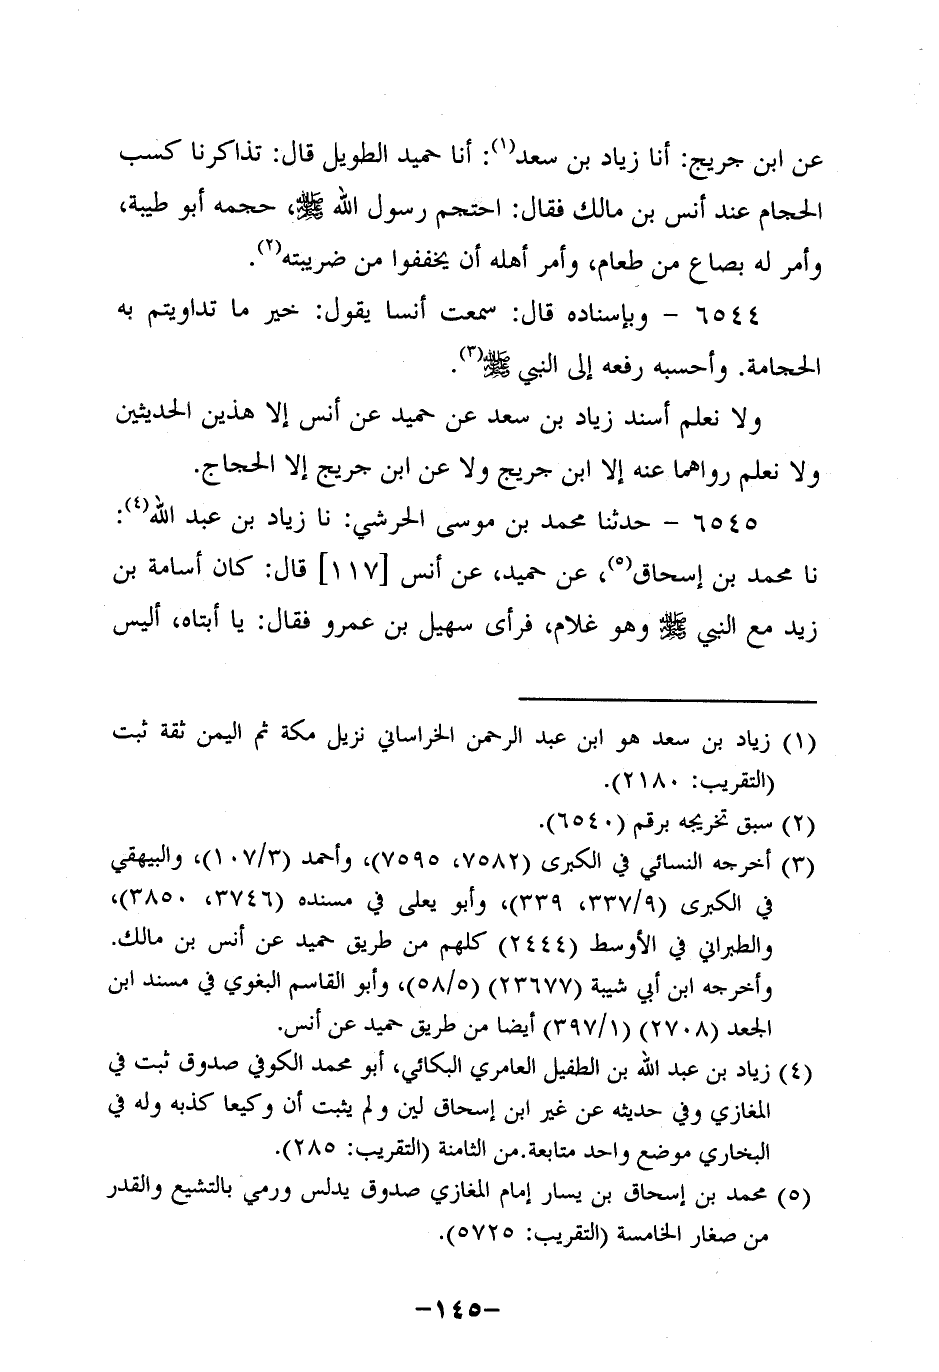 عن ابن جريج: أنا زياد بن سعد(١): أنا حميد الطويل قال: تذاكرنا كسب
الحجام عند أنس بن مالك فقال: احتجم رسول الله ﷺ، حجمه أبو طيبة،
وأمر له بصاع من طعام، وأمر أهله أن يخففوا من ضريبته(٢).
٦٥٤٤ - وبإسناده قال: سمعت أنسا يقول: خير ما تداويتم به
الحجامة. وأحسبه رفعه إلى النبي ﷺ(٣).
ولا نعلم أسند زياد بن سعد عن حميد عن أنس إلا هذين الحديثين
ولا نعلم رواهما عنه إلا ابن جريج ولا عن ابن جريج إلا الحجاج.
٦٥٤٥ - حدثنا محمد بن موسى الحرشي: نا زياد بن عبد الله(٤):
نا محمد بن إسحاق(٥)، عن حميد، عن أنس [١١٧] قال: كان أسامة بن
زيد مع النبي ﷺ وهو غلام، فرأى سهيل بن عمرو فقال: يا أبتاه، أليس
(١) زياد بن سعد هو ابن عبد الرحمن الخراساني نزيل مكة ثم اليمن ثقة ثبت
(التقريب: ٢١٨٠).
(٢) سبق تخريجه برقم (٦٥٤٠).
(٣) أخرجه النسائي في الكبرى (٧٥٨٢، ٧٥٩٥)، وأحمد (١٠٧/٣)، والبيهقي
في الكبرى (٣٣٧/٩، ٣٣٩)، وأبو يعلى في مسنده (٣٧٤٦، ٣٨٥٠)،
والطبراني في الأوسط (٢٤٤٤) كلهم من طريق حميد عن أنس بن مالك.
وأخرجه ابن أبي شيبة (٢٣٦٧٧) (٥٨/٥)، وأبو القاسم البغوي في مسند ابن
الجعد (٢٧٠٨) (٣٩٧/١) أيضا من طريق حميد عن أنس.
(٤) زياد بن عبد الله بن الطفيل العامري البكائي، أبو محمد الكوفي صدوق ثبت في
المغازي وفي حديثه عن غير ابن إسحاق لين ولم يثبت أن وكيعا كذبه وله في
البخاري موضع واحد متابعة.من الثامنة (التقريب: ٢٨٥).
(٥) محمد بن إسحاق بن يسار إمام المغازي صدوق يدلس ورمي بالتشيع والقدر
من صغار الخامسة (التقريب: ٥٧٢٥).
-١٤٥-